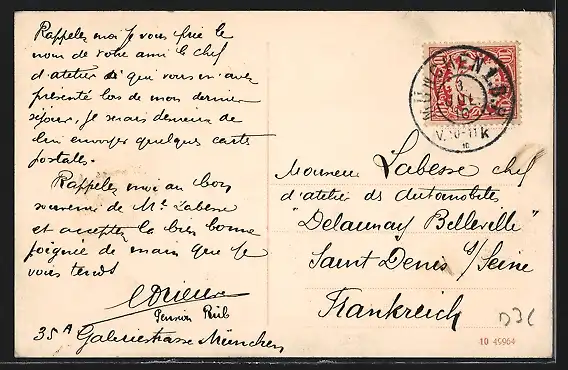 Rappelez moi je vous prie le
nom de votre ami le chef
d'atelier à qui vous m'avez
présenté lors de mon dernier
séjour, je serais heureux de
lui envoyer quelques cartes
postales.
Rappelez moi au bon
souvenir de Mr Labesse
et acceptez la bien bonne
poignée de main que je
vous tends
Pension
35A Gabrielstrasse München
MÜNCHEN
10
V. 10-11 K
Monsieur Labesse chef
d'atelier ds automobiles
"Delaunay Belleville"
Saint Denis s/Seine
Frankreich
D3C
10 49964